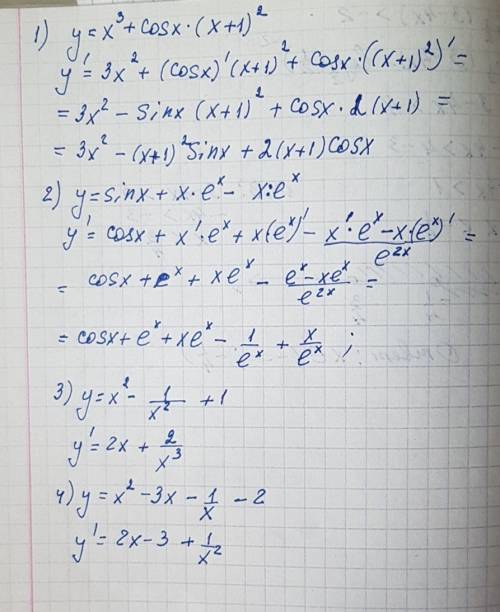 1) y = x³ + cosx · (x+1)²
y' = 3x² + (cosx)'(x+1)² + cosx · ((x+1)²)' =
= 3x² - sinx (x+1)² + cosx · 2(x+1) =
= 3x² - (x+1)² sinx + 2(x+1) cosx
2) y = sinx + x · eˣ - x : eˣ
y' = cosx + x' · eˣ + x(eˣ)' - (x' · eˣ - x · (eˣ)')/e²ˣ =
= cosx + eˣ + xeˣ - (eˣ - xeˣ)/e²ˣ =
= cosx + eˣ + xeˣ - 1/eˣ + x/eˣ ;
3) y = x² - 1/x² + 1
y' = 2x + 2/x³
4) y = x² - 3x - 1/x - 2
y' = 2x - 3 + 1/x²